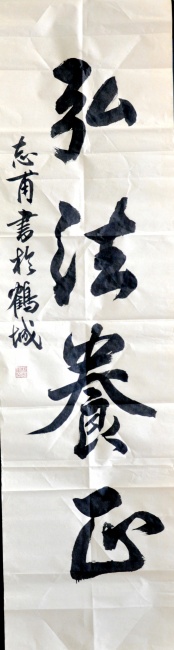 弘法養正
志甫書於鶴城